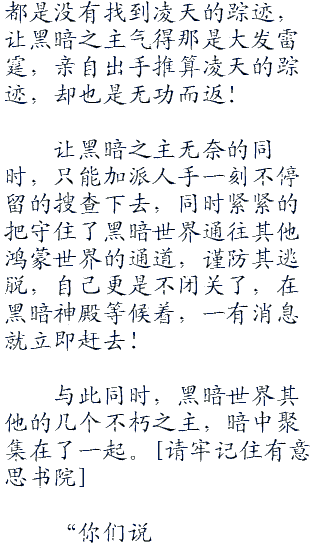 都是没有找到凌天的踪迹，
让黑暗之主气得那是大发雷
霆，亲自出手推算凌天的踪
迹，却也是无功而返！
让黑暗之主无奈的同
时，只能加派人手一刻不停
留的搜查下去，同时紧紧的
把守住了黑暗世界通往其他
鸿蒙世界的通道，谨防其逃
脱，自己更是不闭关了，在
黑暗神殿等候着，一有消息
就立即赶去！
与此同时，黑暗世界其
他的几个不朽之主，暗中聚
集在了一起。[请牢记住有意
思书院]
“你们说